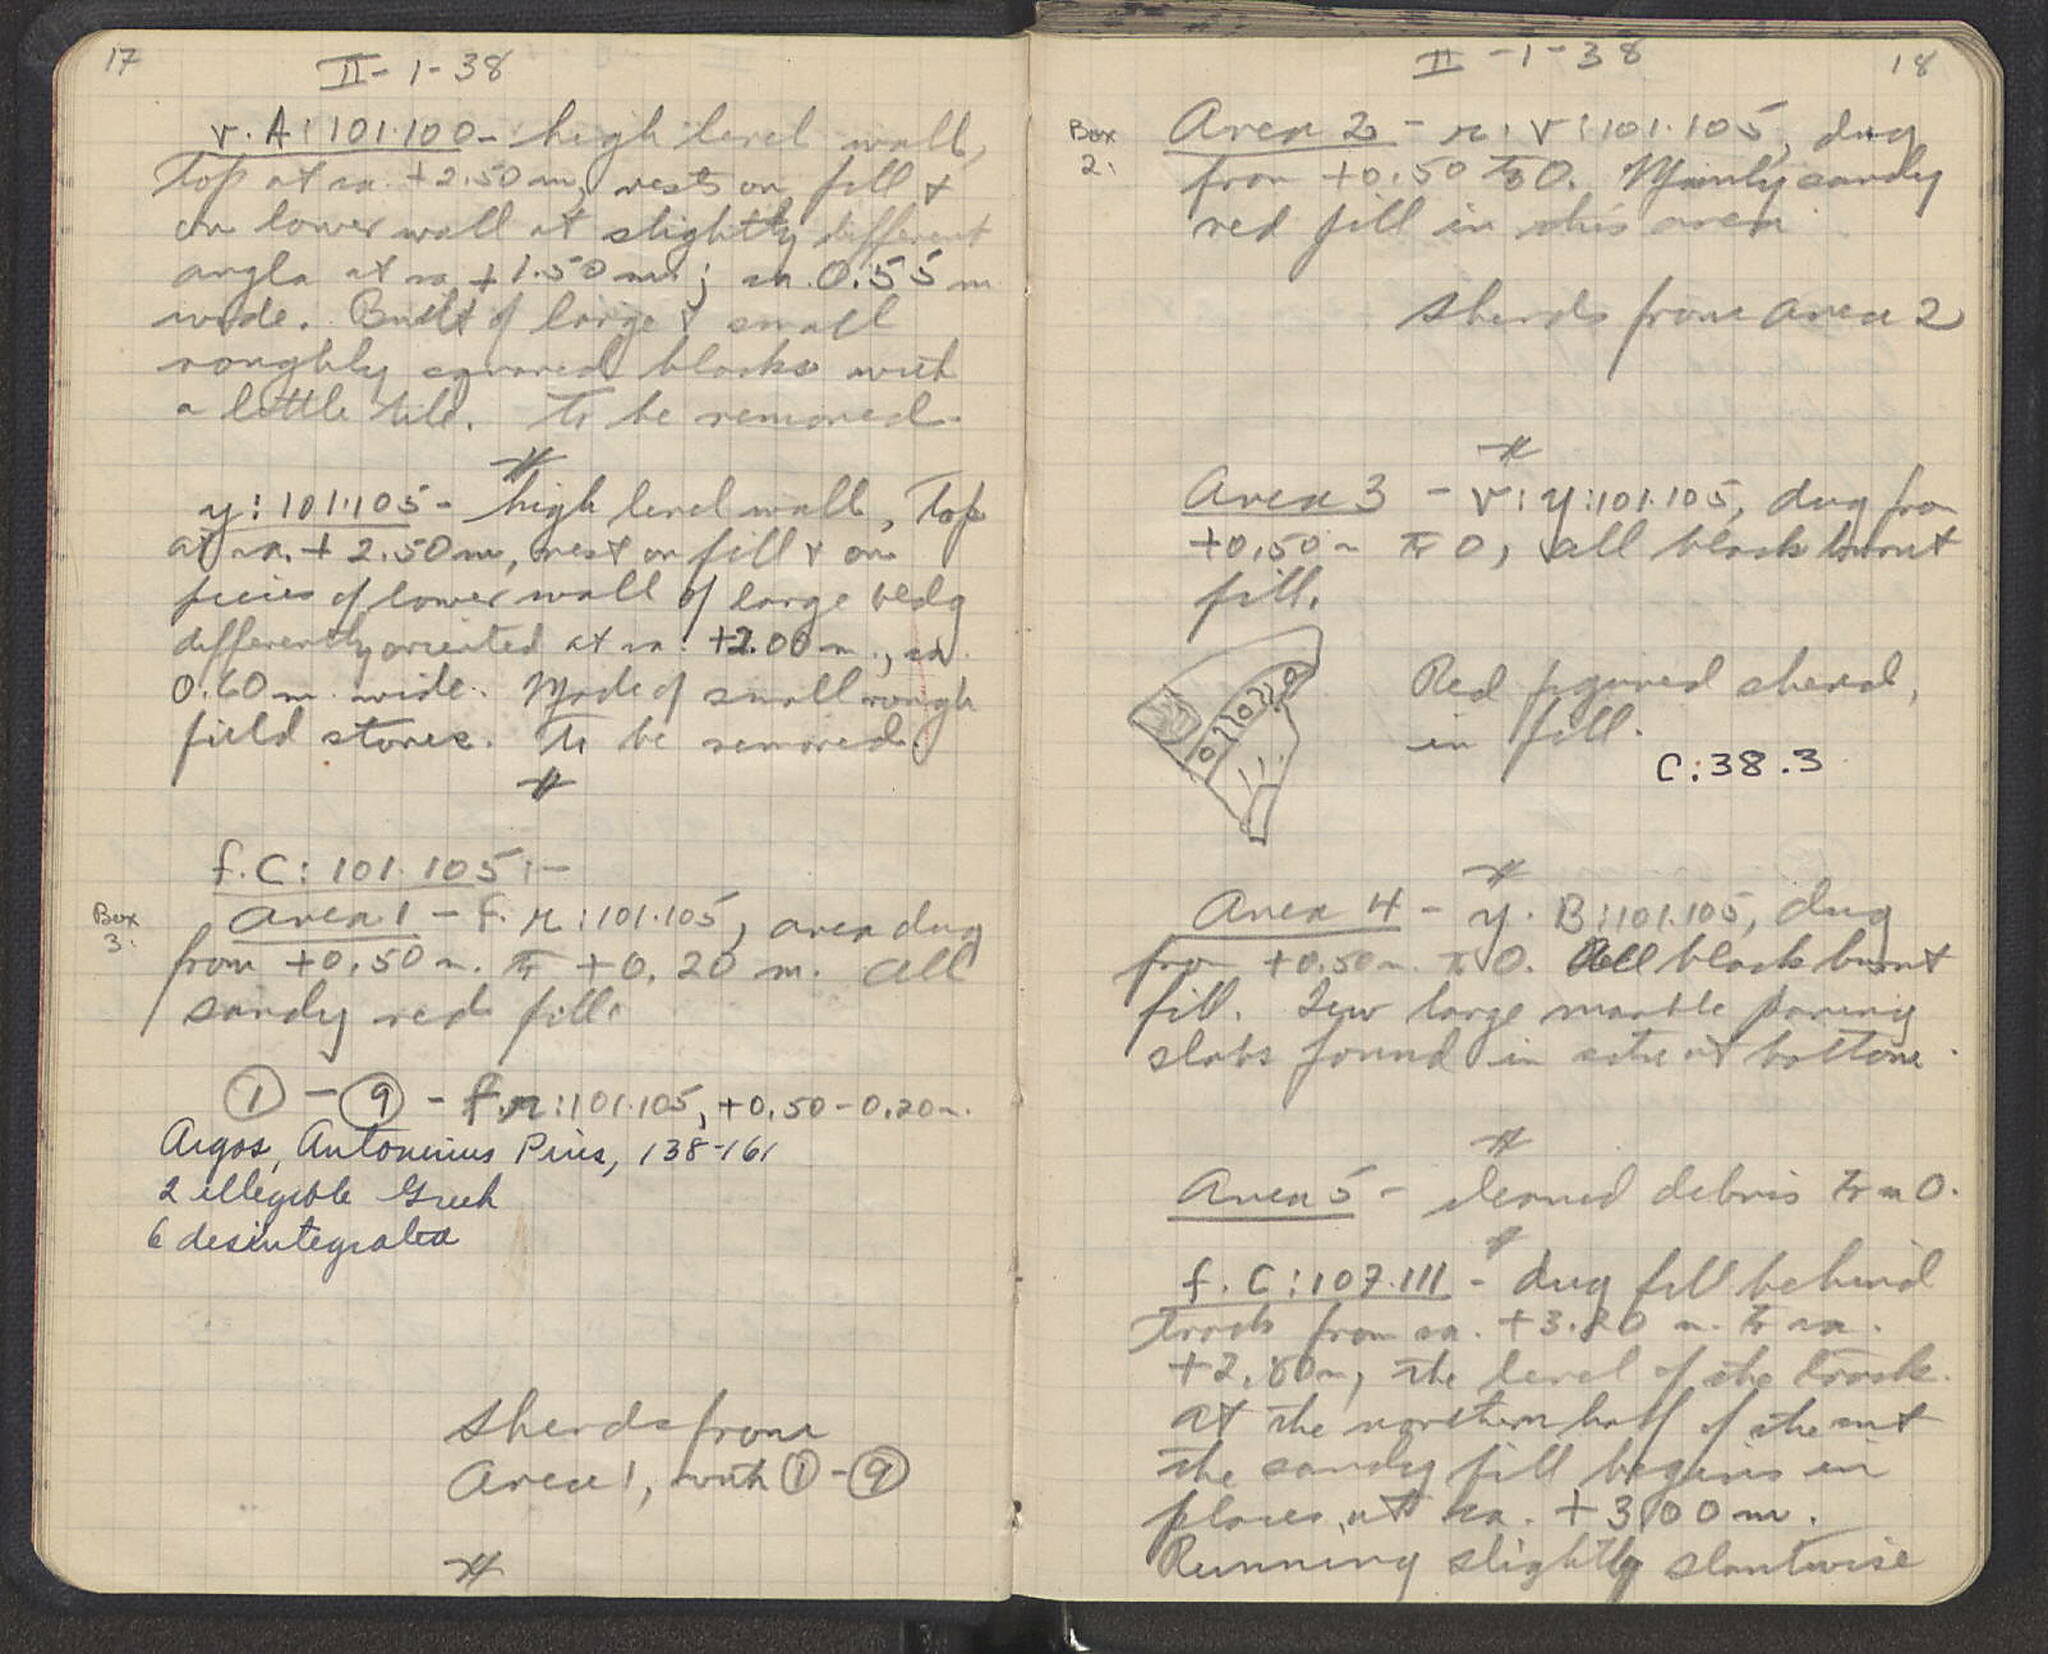 17
II-1-38
v. A: 101.100 - high level wall,
top at ca. +2.50 m, rests on fill +
on lower wall at slightly different
angle at ca +1.50 m.; ca. 0.55 m
wide. Built of large + small
roughly squared blocks with
a little tile. To be removed.
y: 101.105 - high level wall, top
at ca. + 2.50 m, rest on fill + on
pieces of lower wall of large bldg
differently oriented at ca. +2.00 m., ca.
0.60 m. wide. Made of small rough
field stones. To be removed.
f. C: 101.105:-
Box
3.
Area 1 - f. n: 101.105, area dug
from +0.50 m. to +0.20 m. All
sandy red fill.
① - ⑨ - f.n: 101.105, +0.50-0.20 m.
Argos, Antoninus Pius, 138-161
2 illegible Greek
6 desintegrated
Sherds from
Area 1, with ① - ⑨
II-1-38
18
Box
2.
Area 2 - n. v: 101.105, dug
from +0.50 to 0. Mainly sandy
red fill in this area.
Sherds from Area 2
Area 3 - v: y: 101.105, dug from
+0.50 m to 0, all black burnt
fill.
Red figured sherd,
in fill.
C:38.3
Area 4 - y. B: 101.105, dug
from +0.50 m. to 0. All black burnt
fill. Few large marble paving
slabs found in situ at bottom.
Area 5 - cleaned debris to ca 0.
f. C: 107.111 - dug fill behind
track from ca. +3.20 m. to ca.
+2.80 m, the level of the track.
At the northern half of the cut
the sandy fill begins in
places at ca. +3.00 m.
Running slightly slantwise